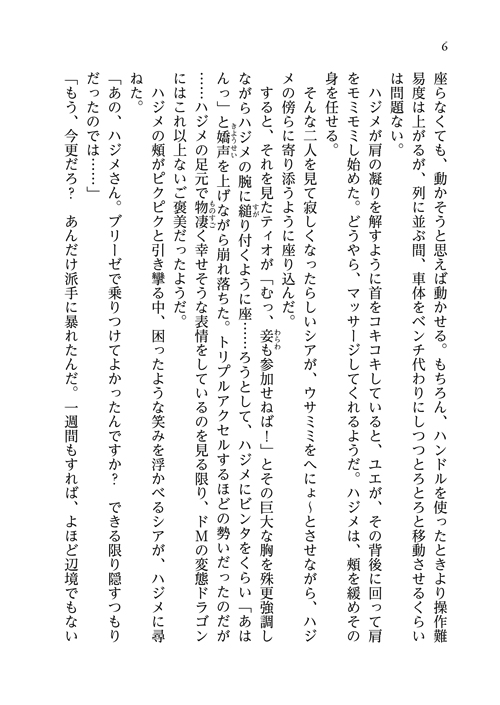 6
座らなくても、動かそうと思えば動かせる。もちろん、ハンドルを使ったときより操作難
易度は上がるが、列に並ぶ間、車体をベンチ代わりにしつつとろとろと移動させるくらい
は問題ない。
ハジメが肩の凝りを解すように首をコキコキしていると、ユエが、その背後に回って肩
をモミモミし始めた。どうやら、マッサージしてくれるようだ。ハジメは、頬を緩めその
身を任せる。
そんな二人を見て寂しくなったらしいシアが、ウサミミをへにょ～とさせながら、ハジ
メの傍らに寄り添うように座り込んだ。
すると、それを見たティオが「むっ、妾も参加せねば！」とその巨大な胸を殊更強調し
ながらハジメの腕に縋り付くように座……ろうとして、ハジメにビンタをくらい「あは
んっ」と嬌声を上げながら崩れ落ちた。トリプルアクセルするほどの勢いだったのだが
……ハジメの足元で物凄く幸せそうな表情をしているのを見る限り、ドＭの変態ドラゴン
にはこれ以上ないご褒美だったようだ。
ハジメの頬がピクピクと引き攣る中、困ったような笑みを浮かべるシアが、ハジメに尋
ねた。
「あの、ハジメさん。ブリーゼで乗りつけてよかったんですか？　できる限り隠すつもり
だったのでは……」
「もう、今更だろ？　あんだけ派手に暴れたんだ。一週間もすれば、よほど辺境でもない